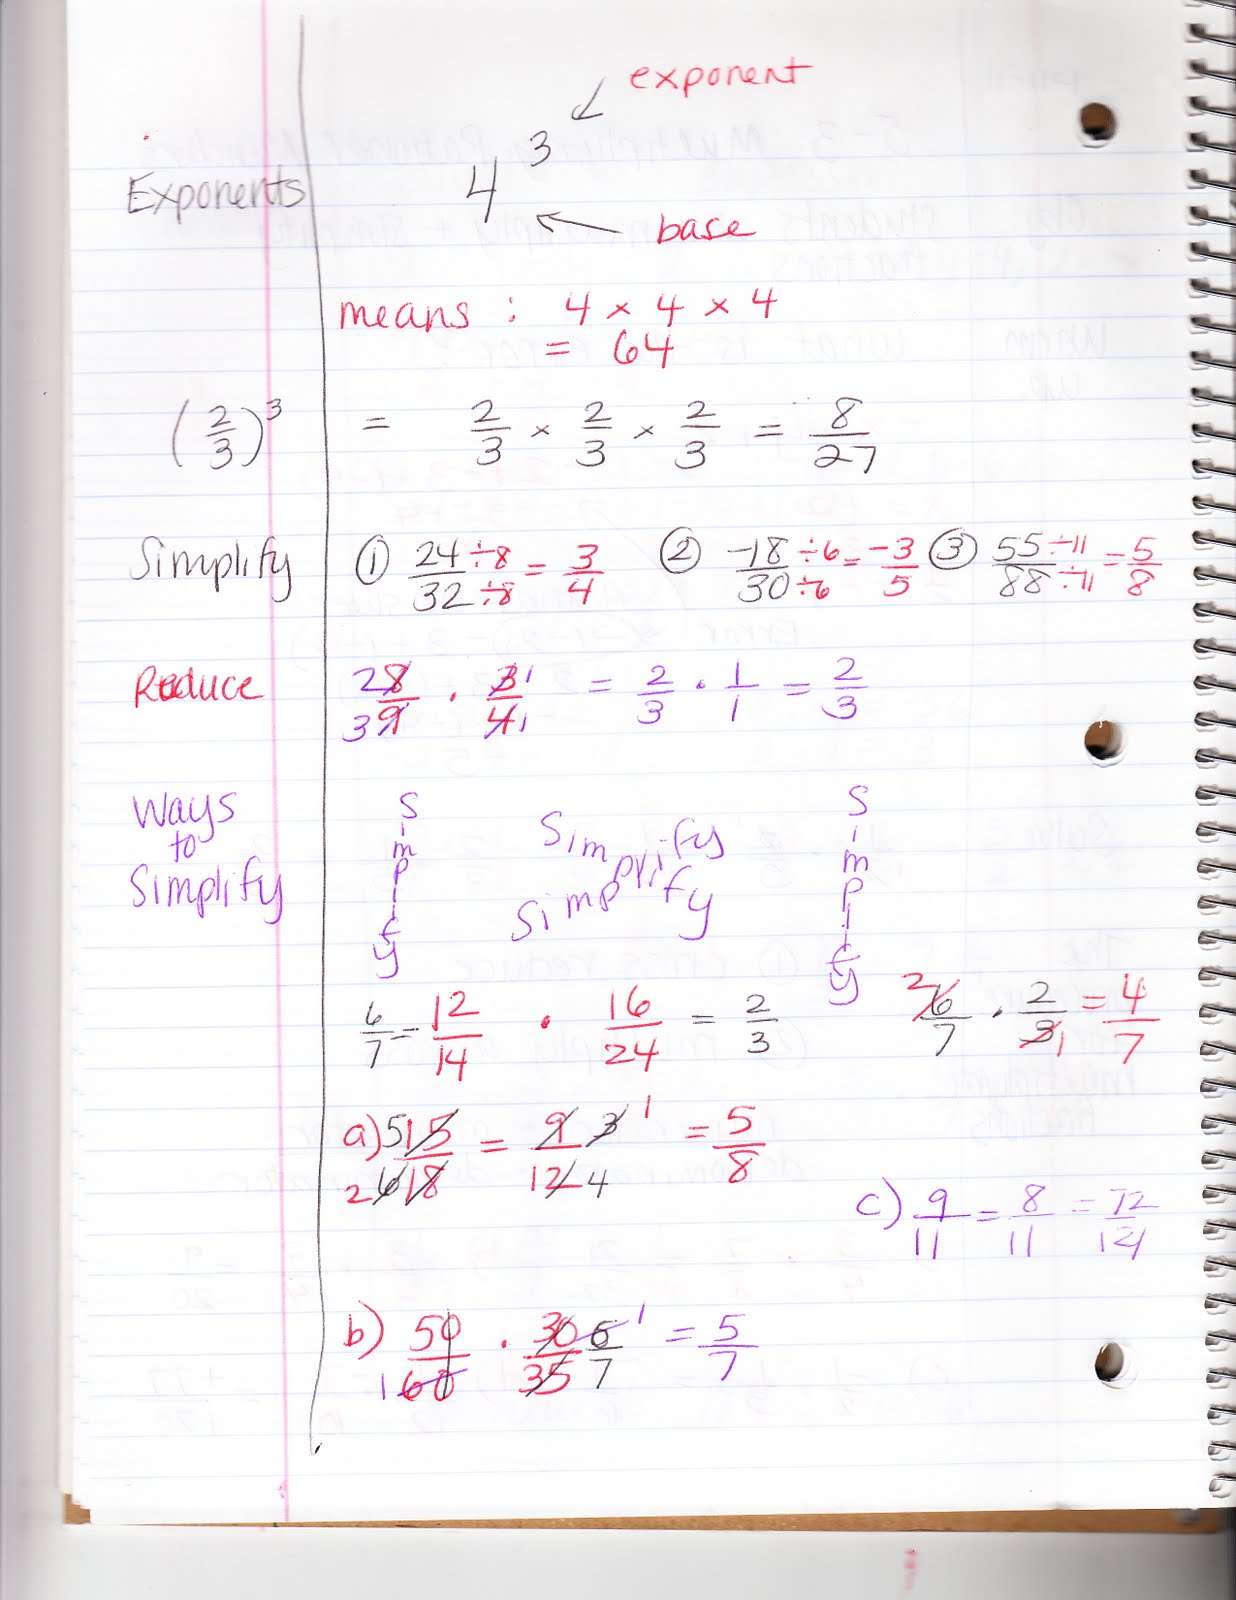 exponent
4³
Exponents
base
means : 4 × 4 × 4
= 64
(2/3)³ = 2/3 × 2/3 × 2/3 = 8/27
Simplify ① 24/32 ÷8/÷8 = 3/4 ② -18/30 ÷6/÷6 = -3/5 ③ 55/88 ÷11/÷11 = 5/8
Reduce 2 8/3 9 · 3 1/4 1 = 2/3 · 1/1 = 2/3
Ways
to
Simplify
Simplify
Simplify
Simplify
Simplify
6/7 = 12/14 · 16/24 = 2/3
2 6/7 · 2/3 1 = 4/7
a) 5 15/2 6 18 = 9 3 1/12 4 = 5/8
c) 9/11 = 8/11 = 72/121
b) 50/1 60 · 30 6 1/35 7 = 5/7